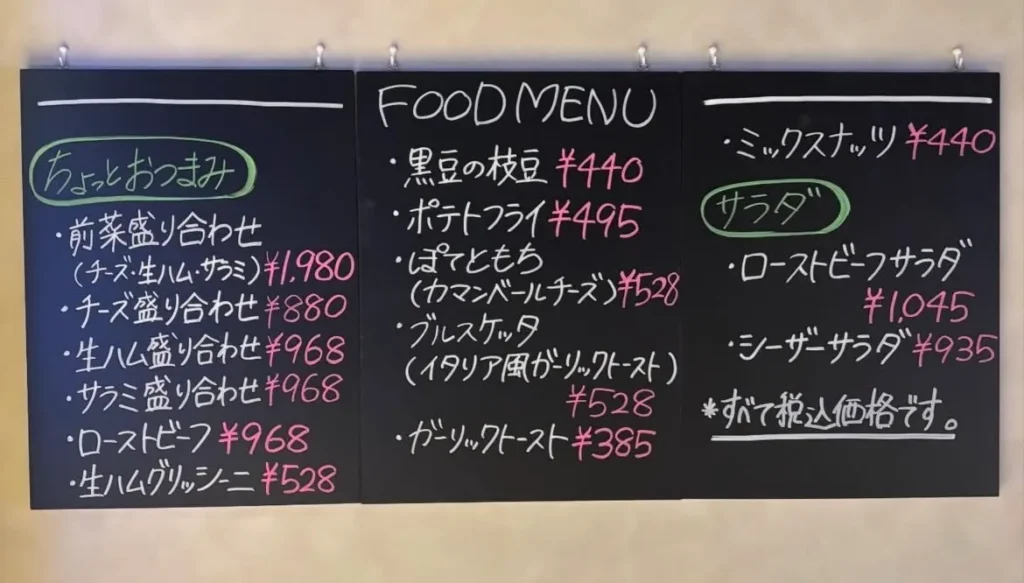 ちょっとおつまみ
・前菜盛り合わせ
(チーズ・生ハム・サラミ)¥1,980
・チーズ盛り合わせ¥880
・生ハム盛り合わせ¥968
・サラミ盛り合わせ¥968
・ローストビーフ¥968
・生ハムグリッシーニ¥528
FOOD MENU
・黒豆の枝豆 ¥440
・ポテトフライ¥495
・ぽてともち
(カマンベールチーズ)¥528
・ブルスケッタ
(イタリア風ガーリックトースト)
¥528
・ガーリックトースト¥385
・ミックスナッツ ¥440
サラダ
・ローストビーフサラダ
¥1,045
・シーザーサラダ¥935
*すべて税込価格です。